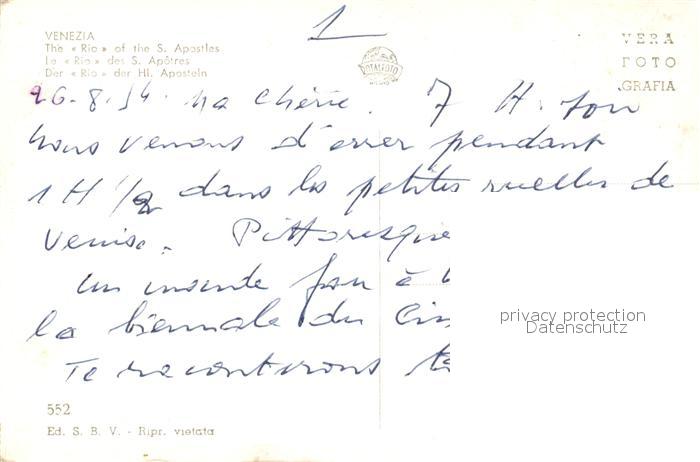 1
VENEZIA
The « Rio » of the S. Apostles
Le « Rio » des S. Apôtres
Der « Rio » der Hl. Aposteln
VERA
FOTO
GRAFIA
26.8.54. Ma Chérie. 7 H.
nous venons d'errer pendant
1 H 1/2 dans les petites ruelles de
Venise. Pittoresque
Un monde fou à
la biennale du
Te raconterons
privacy protection
Datenschutz
552
Ed. S. B. V. - Ripr. vietata